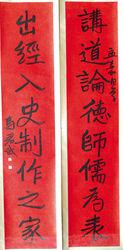 講道論德師儒為表
出經入史制作之家